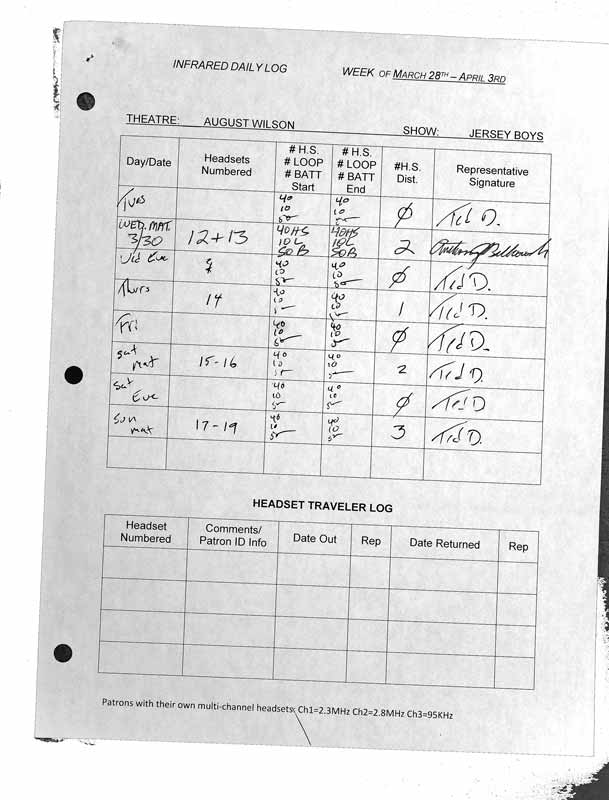 INFRARED DAILY LOG WEEK OF MARCH 28TH – APRIL 3RD
THEATRE: AUGUST WILSON SHOW: JERSEY BOYS
Day/Date Headsets Numbered # H.S. # LOOP # BATT Start # H.S. # LOOP # BATT End #H.S. Dist. Representative Signature
Tues 40 10 50 40 10 50 Ø Ted D.
WED. MAT. 3/30 12+13 40HS 10L 50B 40HS 10L 50B 2
Wed Eve 40 10 50 40 10 50 Ø Ted D.
Thurs 14 40 10 50 40 10 50 1 Ted D.
Fri 40 10 50 40 10 50 Ø Ted D.
Sat mat 15-16 40 10 50 40 10 50 2 Ted D.
Sat Eve 40 10 50 40 10 50 Ø Ted D
Sun mat 17-19 40 10 50 40 10 50 3 Ted D.
HEADSET TRAVELER LOG
Headset Numbered Comments/ Patron ID Info Date Out Rep Date Returned Rep
Patrons with their own multi-channel headsets: Ch1=2.3MHz Ch2=2.8MHz Ch3=95KHz